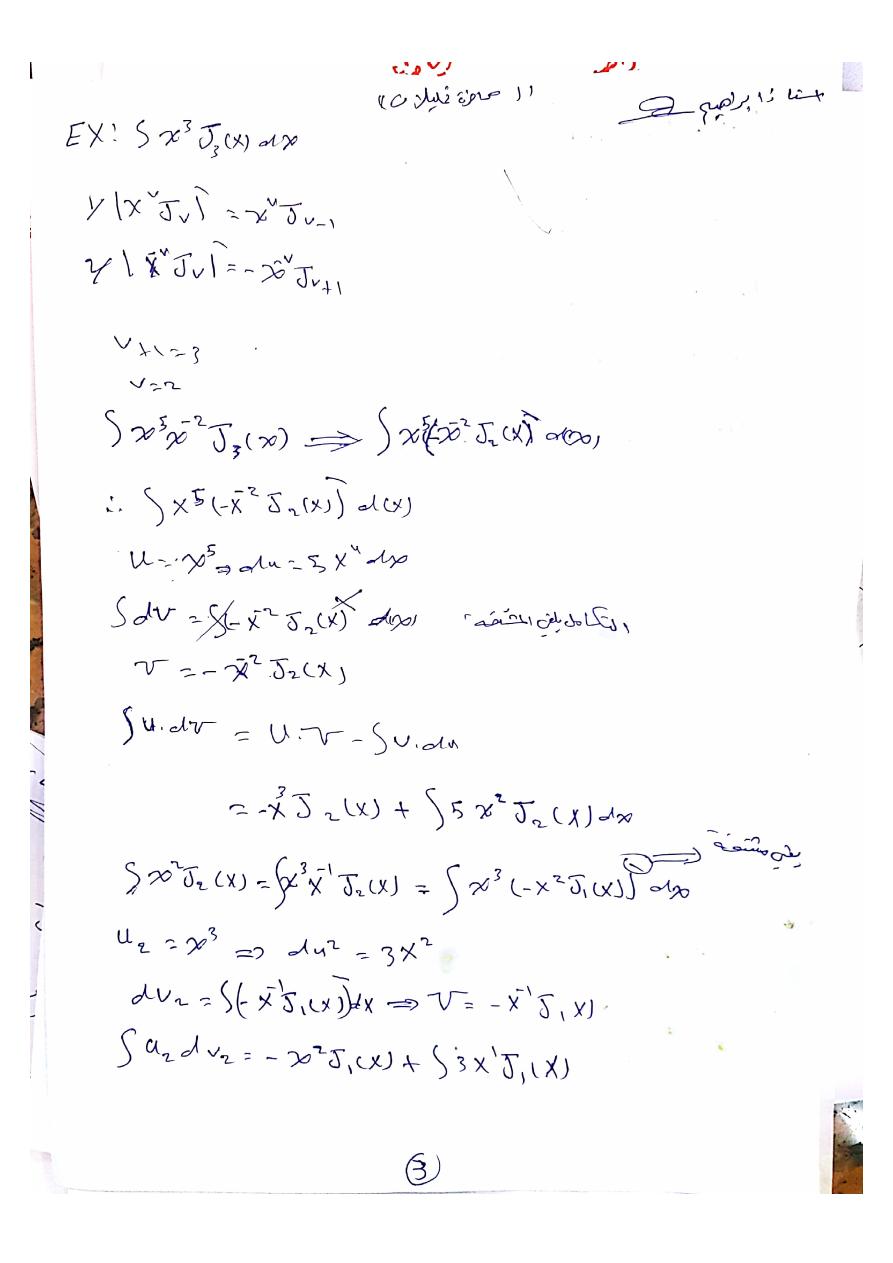 استاذ ابراهيم
EX: ∫ x³ J₃(x) dx
1/ (x^ν J_ν)' = x^ν J_ν-1
2/ (x^-ν J_ν)' = -x^-ν J_ν+1
ν+1=3
ν=2
∫ x⁵ x⁻² J₃(x) ⟹ ∫ x⁵(-x⁻² J₂(x))' d(x)
∴ ∫ x⁵ (-x⁻² J₂(x))' d(x)
u = x⁵ ⇒ du = 5x⁴ dx
∫dv = ∫(-x⁻² J₂(x))' d(x) التكامل يلغي المشتقة
v = -x⁻² J₂(x)
∫u.dv = u.v - ∫v.du
= -x³ J₂(x) + ∫5 x² J₂(x) dx
∫x² J₂(x) = ∫x³ x⁻¹ J₂(x) = ∫ x³ (-x² J₁(x))' dx ⟹ يعني مشتقة
u₂ = x³ ⇒ du² = 3x²
dv₂ = ∫(-x⁻¹ J₁(x))' dx ⇒ v = -x⁻¹ J₁ x)
∫ u₂ dv₂ = -x² J₁(x) + ∫3x¹ J₁(x)
3